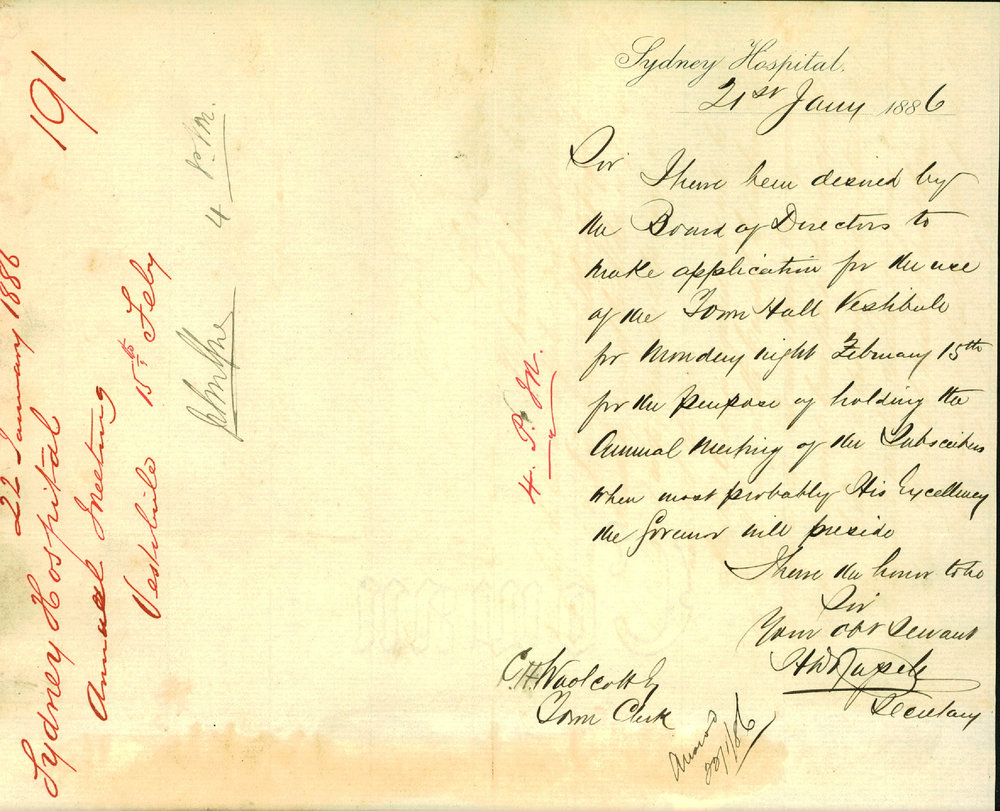 Sydney Hospital.
21st Jany 1886
Sir I have been desired by
the Board of Directors to
make application for the use
of the Town Hall Vestibule
for Monday night February 15th
for the purpose of holding the
Annual Meeting of the Subscribers
when most probably His Excellency
the Governor will preside
I have the honor to be
Sir
Your obt Servant
Secretary
C.H. Woolcott Esq
Town Clerk
22/1/86
4. P. M.
191
22 January 1886
Sydney Hospital
Annual Meeting
Vestibule 15th Feby
4 P.M.